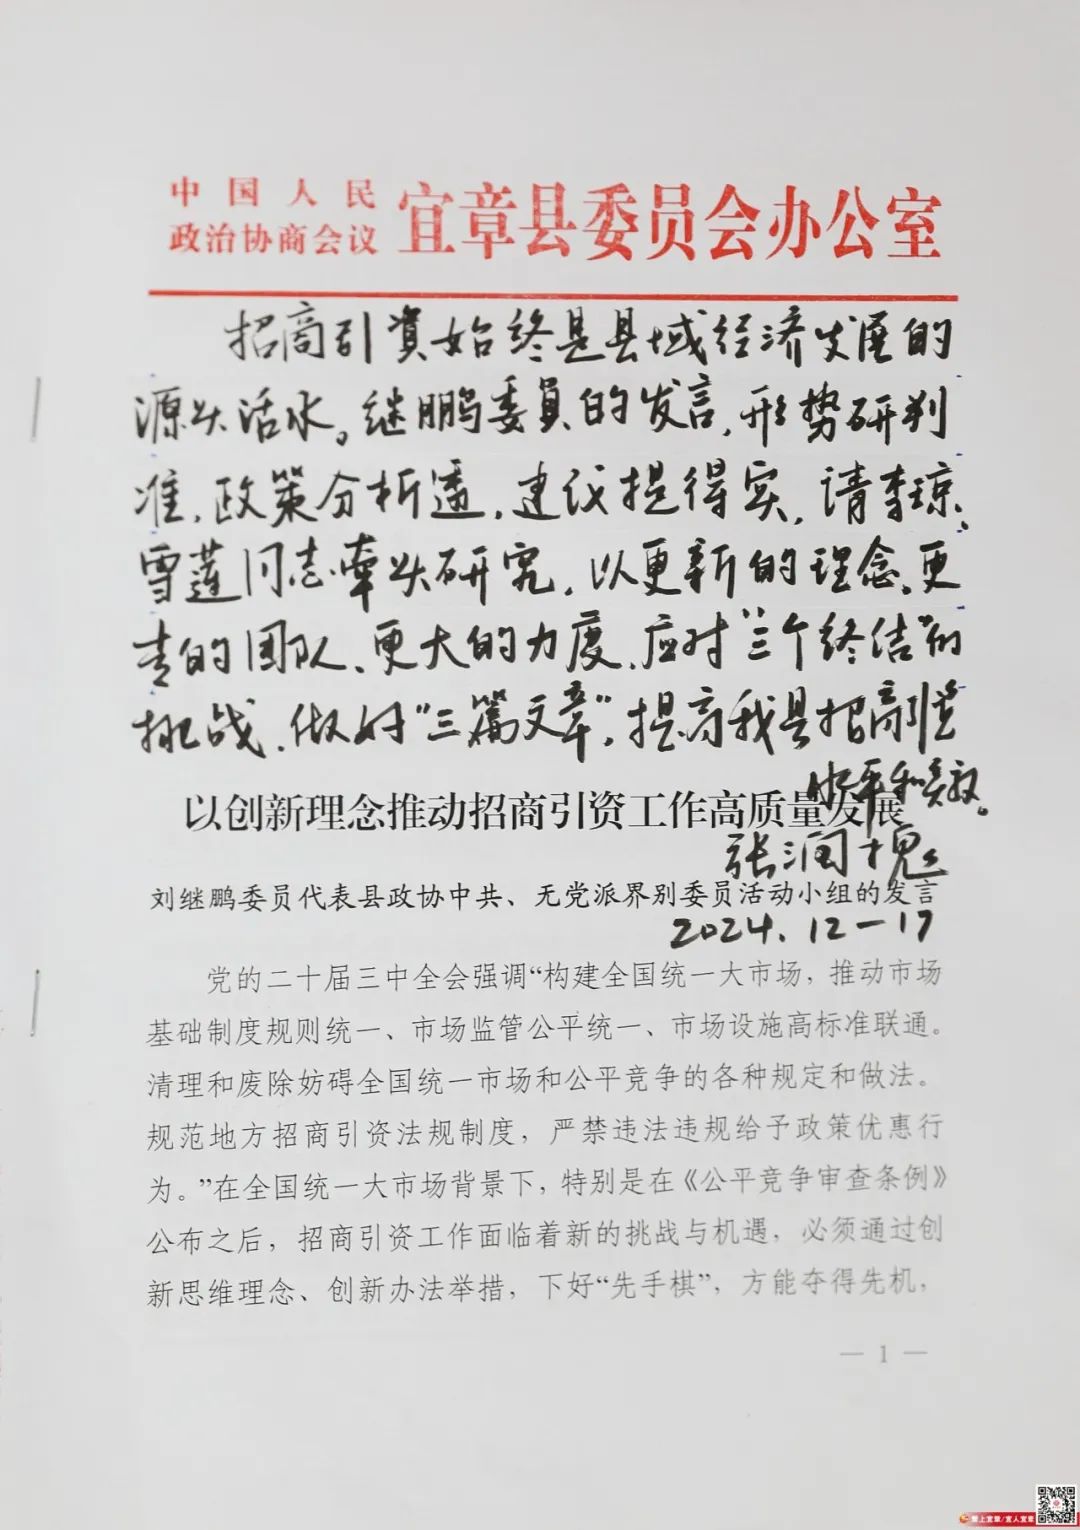 中国人民
政治协商会议 宜章县委员会办公室
招商引資始终是县域经济发展的
源头活水。继鹏委員的发言,形势研判
准,政策分析透,建议提得实,请李琼、
雪莲同志牵头研究,以更新的理念、更
专的团队、更大的力度,应对“三个终结”的
挑战,做好“三篇文章”,提高我县招商引資
水平和实效。
以创新理念推动招商引资工作高质量发展
张润槐
刘继鹏委员代表县政协中共、无党派界别委员活动小组的发言
2024.12-17
党的二十届三中全会强调“构建全国统一大市场,推动市场
基础制度规则统一、市场监管公平统一、市场设施高标准联通。
清理和废除妨碍全国统一市场和公平竞争的各种规定和做法。
规范地方招商引资法规制度,严禁违法违规给予政策优惠行
为。”在全国统一大市场背景下,特别是在《公平竞争审查条例》
公布之后,招商引资工作面临着新的挑战与机遇,必须通过创
新思维理念、创新办法举措,下好“先手棋”,方能夺得先机,
— 1 —
爱上宜章/宜人宜章